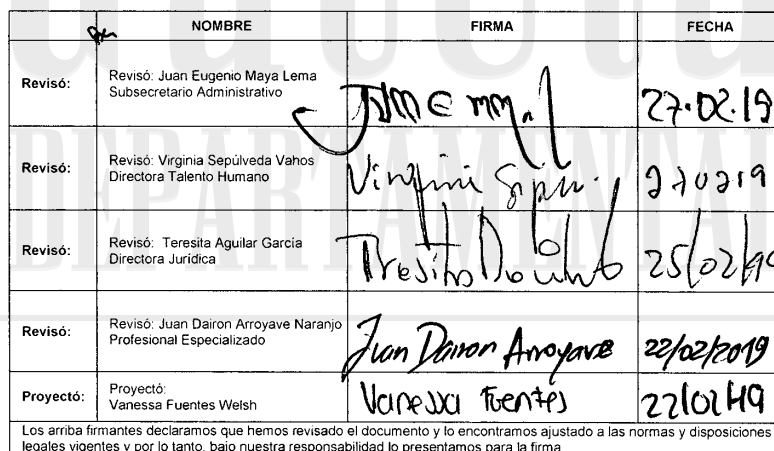 NOMBRE FIRMA FECHA
Revisó: Revisó: Juan Eugenio Maya Lema
Subsecretario Administrativo
27.02.19
Revisó: Revisó: Virginia Sepúlveda Vahos
Directora Talento Humano
Virginia 270219
Revisó: Revisó: Teresita Aguilar García
Directora Jurídica
25/02/19
Revisó: Revisó: Juan Dairon Arroyave Naranjo
Profesional Especializado
Juan Dairon Arroyave 22/02/2019
Proyectó: Proyectó:
Vanessa Fuentes Welsh
Vanessa Fuentes 22/02/19
Los arriba firmantes declaramos que hemos revisado el documento y lo encontramos ajustado a las normas y disposiciones
legales vigentes y por lo tanto, bajo nuestra responsabilidad lo presentamos para la firma
DEPARTAMENTAL